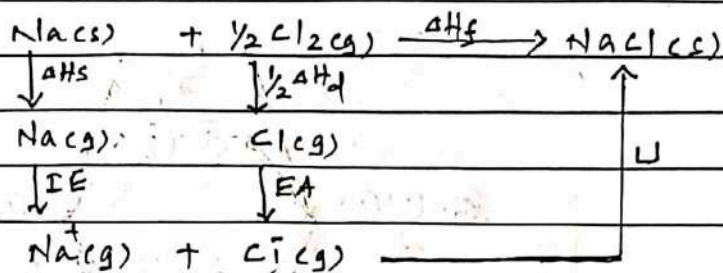 Na(s) + 1/2 Cl2(g) ΔHf → NaCl(s)
↓ΔHs ↓1/2 ΔHd
Na(g) Cl(g) U
↓IE ↓EA
Na⁺(g) + Cl⁻(g)